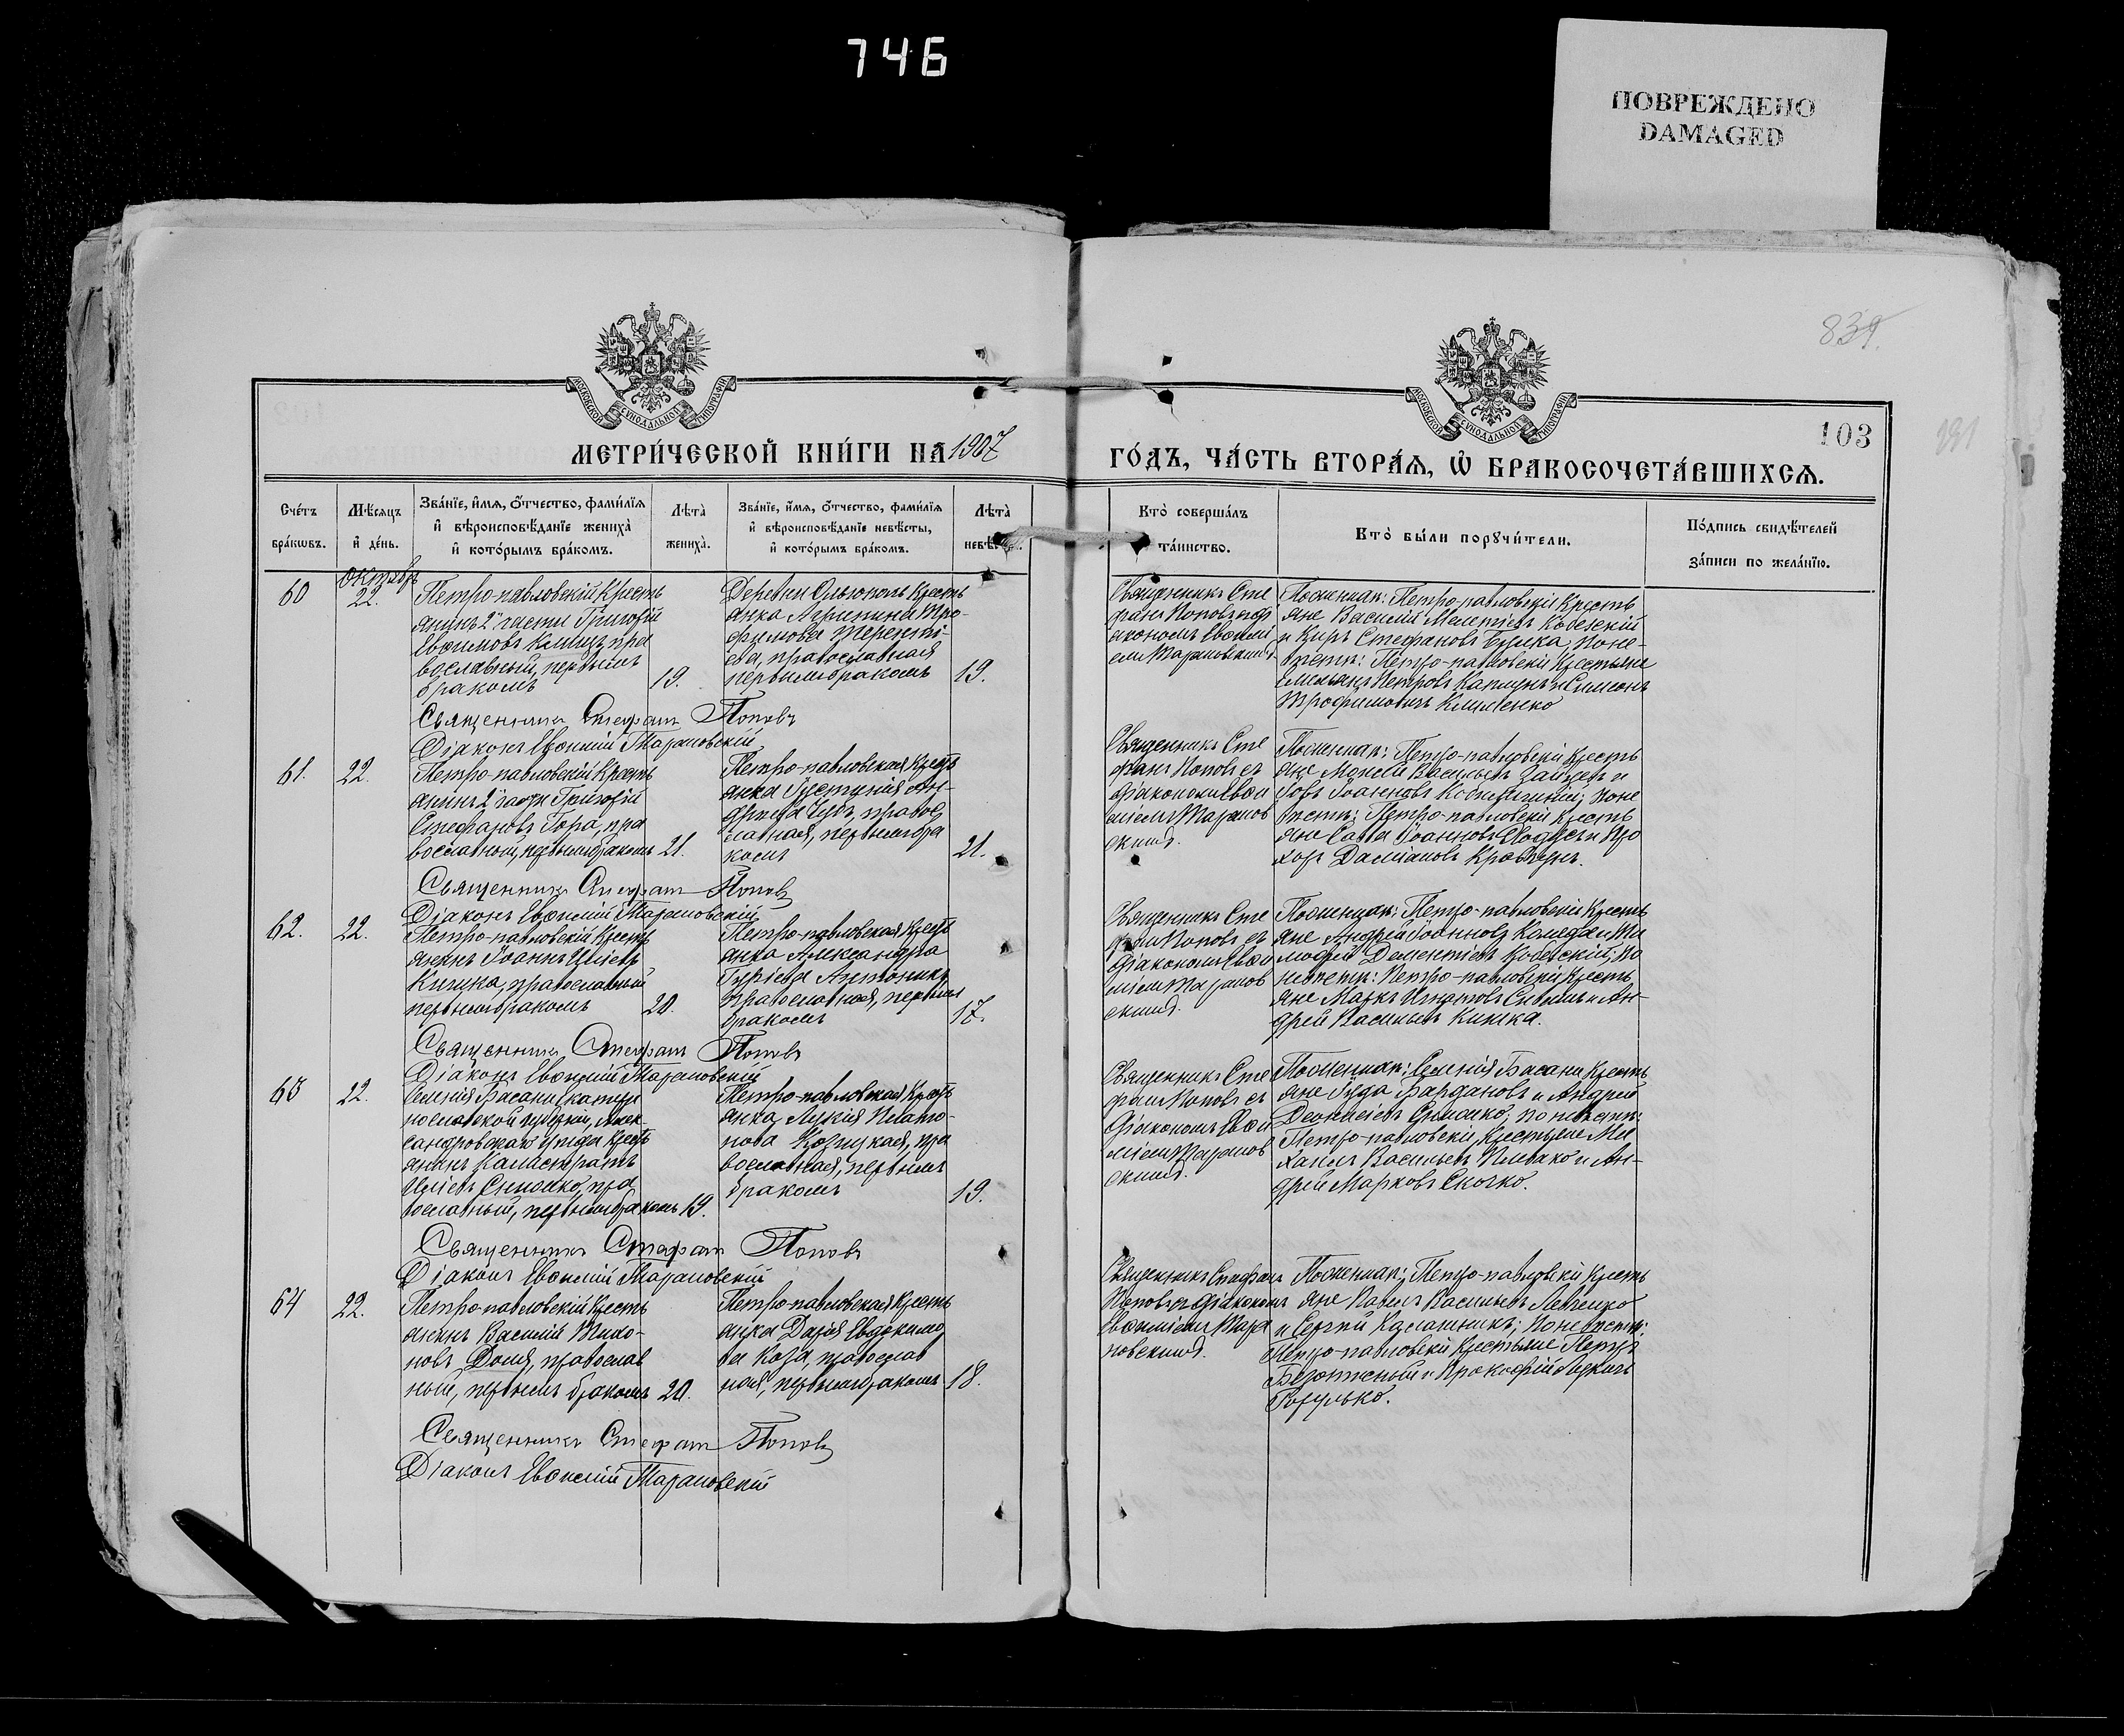 746
ПОВРЕЖДЕНО
DAMAGED
839.
991
103
МОСКОВСКОЙ СѴНОДАЛЬНОЙ ТИПОГРАФІИ
МОСКОВСКОЙ СѴНОДАЛЬНОЙ ТИПОГРАФІИ
МЕТРИ́ЧЕСКОЙ КНИ́ГИ НА 1907
ГО́ДЪ, ЧА́СТЬ ВТОРА́Ѧ, Ѡ҆ БРАКОСОЧЕТА́ВШИХСѦ.
Сче́тъ бра́кѡвъ.
Мѣ́сяцъ и҆ де́нь.
Зва́нїе, и҆́мѧ, о҆́тчество, фами́лїѧ
и҆ вѣроисповѣ́данїе жениха̀
и҆ кото́рымъ бра́комъ.
Лѣта̀ жениха̀.
Зва́нїе, и҆́мѧ, о҆́тчество, фами́лїѧ
и҆ вѣроисповѣ́данїе невѣ́сты,
и҆ кото́рымъ бра́комъ.
Лѣта̀
Кто̀ соверша́лъ
та́инство.
Кто̀ бы́ли порꙋчи́тели.
По́дпись свидѣ́телей
за́писи по жела́нїю.
Октябрь
60
22.
Петро-павловскій Кресть
янинъ 2й части Григорій
Евѳимовъ пра
вославный, первымъ
бракомъ
19.
Деревни Ольгополь Кресть
янка Агрипина Тро-
фимова Терентi-
ева, православная
первымъ бракомъ
19.
Священникъ Сте
фанъ Поповъ съ дi
акономъ Евѳимi
емъ Тарановскимъ.
По женихѣ: Петро-павловскіе Кресть
яне Василій Мелетіевъ Кобезскій
и Киръ Стефановъ Бушка; По не-
вѣстѣ: Петро-павловскіе Крестьяне
Петровъ Каплунъ и Симеонъ
Трофимовичъ Клименко
Священникъ Стефанъ Поповъ
Діаконъ Евѳимій Тарановскій
61.
22.
Петро-павловскій Кресть
янинъ 2й части Григорій
Стефановъ Гора, пра
вославный, первымъ бракомъ
21.
Петро-павловская Кресть
янка Ан-
дреева Чубъ, правос
лавная, первымъ бра
комъ
21.
Священникъ Сте
фанъ Поповъ съ
діакономъ Евѳи
міемъ Таранов
скимъ.
По женихѣ: Петро-павловскіе Кресть
яне Моисей Васильевъ Зайцевъ и
Іовъ Іоанновъ; По не
вѣстѣ: Петро-павловскіе Кресть
яне Савва Іоанновъ и Про
хоръ Даміановъ Кравчунъ.
Священникъ Стефанъ Поповъ
Діаконъ Евѳимій Тарановскій
62.
22.
Петро-павловскій Кресть
янинъ Іоаннъ Иліевъ
Кишка, православный
первымъ бракомъ
20.
Петро-павловская Кресть
янка Александра
Гуріева Антоникъ
православная, первымъ
бракомъ
17.
Священникъ Сте
фанъ Поповъ съ
діакономъ Евѳи
міемъ Таранов
скимъ.
По женихѣ: Петро-павловскіе Кресть
яне Андрей Іоанновъ и Ти
моѳей Дементіевъ Кобезскій; По
невѣстѣ: Петро-павловскіе Кресть
яне Маркъ Игнатовъ и Ан-
дрей Васильевъ Кишка.
Священникъ Стефанъ Поповъ
Діаконъ Евѳимій Тарановскій
63
22.
Селенія Басани Екатери
нославской губерніи, Алек
сандровскаго уѣзда Кресть
янинъ Каллистратъ
Иліевъ, пра
вославный, первымъ бракомъ
19.
Петро-павловская Кресть
янка Лукія Плато-
нова Корнуцкая, пра
вославная, первымъ
бракомъ
19.
Священникъ Сте
фанъ Поповъ съ
діакономъ Евѳи
міемъ Таранов
скимъ.
По женихѣ: Селенія Басани Кресть
яне и Андрей
Деонисіевъ; по невѣстѣ:
Петро-павловскіе Крестьяне Ми
хаилъ Васильевъ Плевако и Ан-
дрей Марковъ Скочко.
Священникъ Стефанъ Поповъ
Діаконъ Евѳимій Тарановскій
64
22.
Петро-павловскій Кресть
янинъ Василій Тихо-
новъ Доля, православ
ный, первымъ бракомъ
20.
Петро-павловская Кресть
янка Дарія Евдокимо
ва Коза, православ
ная, первымъ бракомъ
18.
Священникъ Стефанъ
Поповъ съ діакономъ
Евѳиміемъ Тара
новскимъ.
По женихѣ: Петро-павловскіе Кресть
яне Павелъ Васильевъ Левченко
и Сергій; По невѣстѣ:
Петро-павловскіе Крестьяне Петръ
и Прокофій Лукинъ
Гогулько.
Священникъ Стефанъ Поповъ
Діаконъ Евѳимій Тарановскій